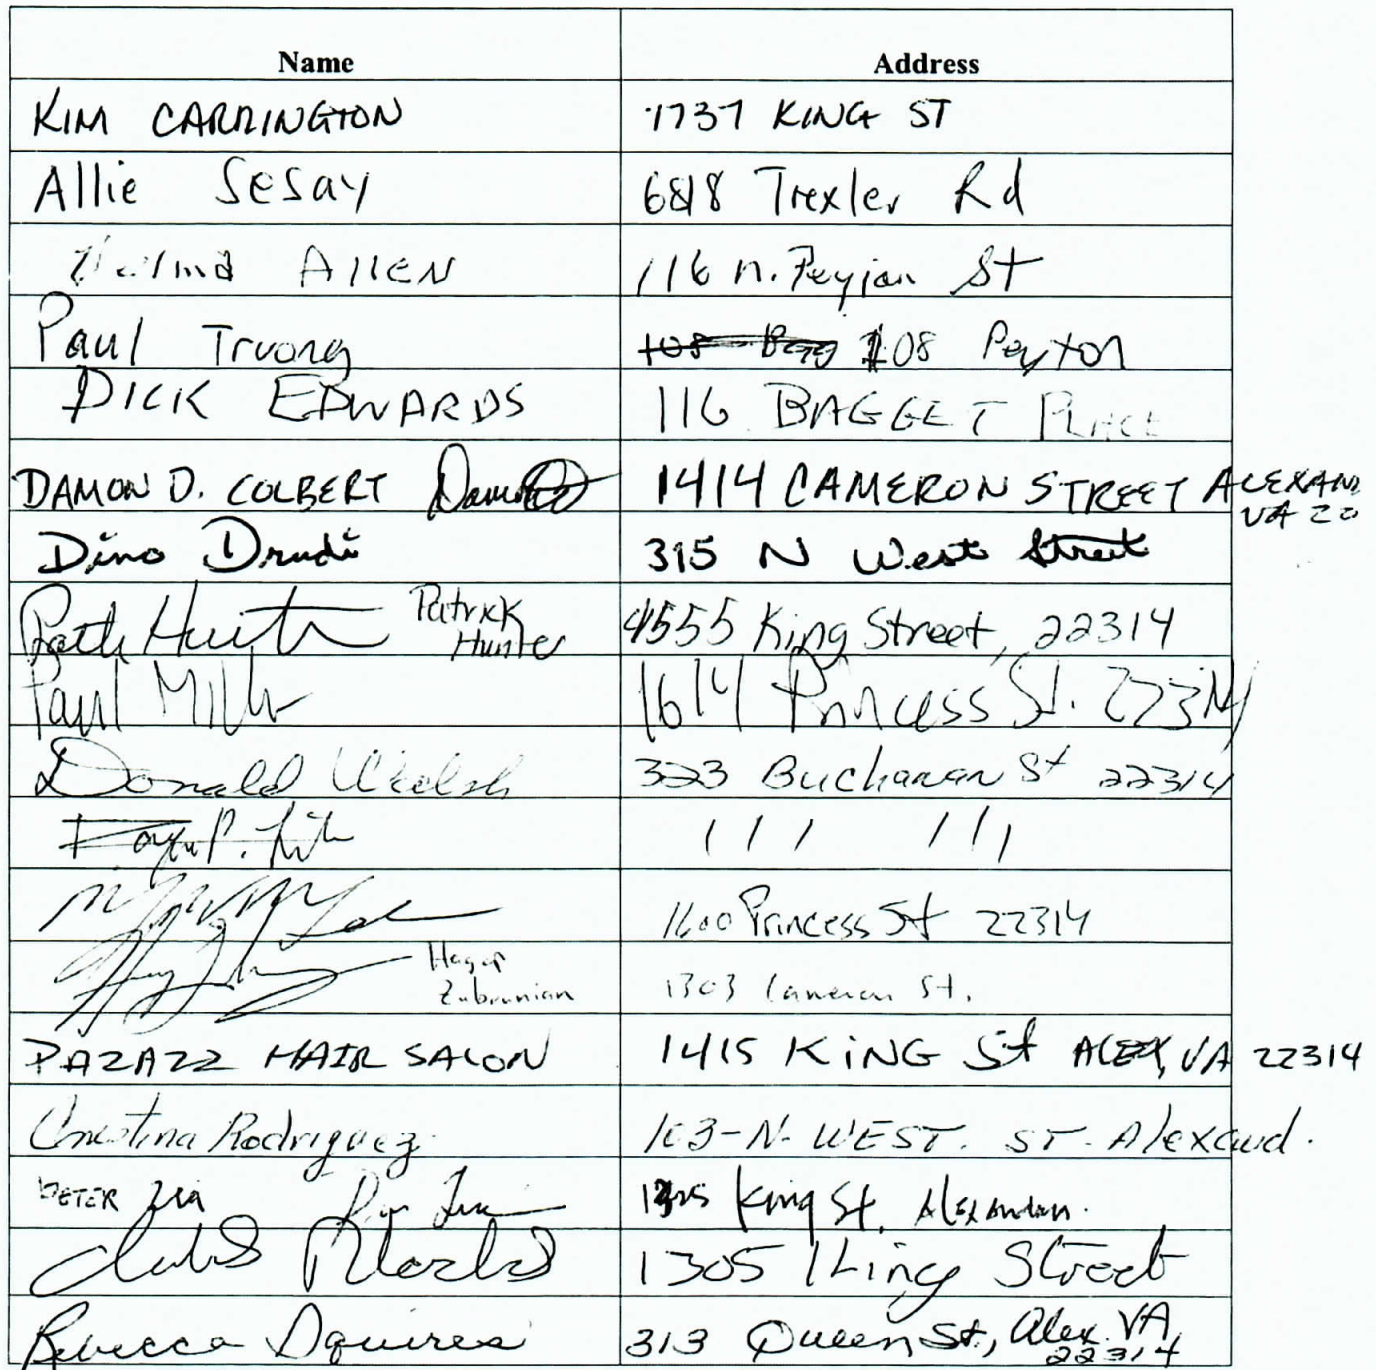 Name Address
KIM CARRINGTON 1737 KING ST
Allie Sesay 6818 Trexler Rd
Allen 116 N. Peyton St
Paul Truong 108 Peyton
DICK EDWARDS 116 BAGGET PLACE
DAMON D. COLBERT 1414 CAMERON STREET ALEXAND
VA 22
Dino Drudi 315 N West Street
Patrick
Hunter 4555 King Street, 22314
Paul Miller 1614 Princess St. 22314
Donald Welsh 323 Buchanan St 22314
/ / / / / /
1600 Princess St 22314
Hagop 1303 Cameron St.
PAZAZZ HAIR SALON 1415 KING St ALEX, VA 22314
Christina Rodriguez 103-N. WEST. ST. Alexand.
PETER King St.
1305 King Street
Rebecca Squires 313 Queen St., Alex. VA
22314